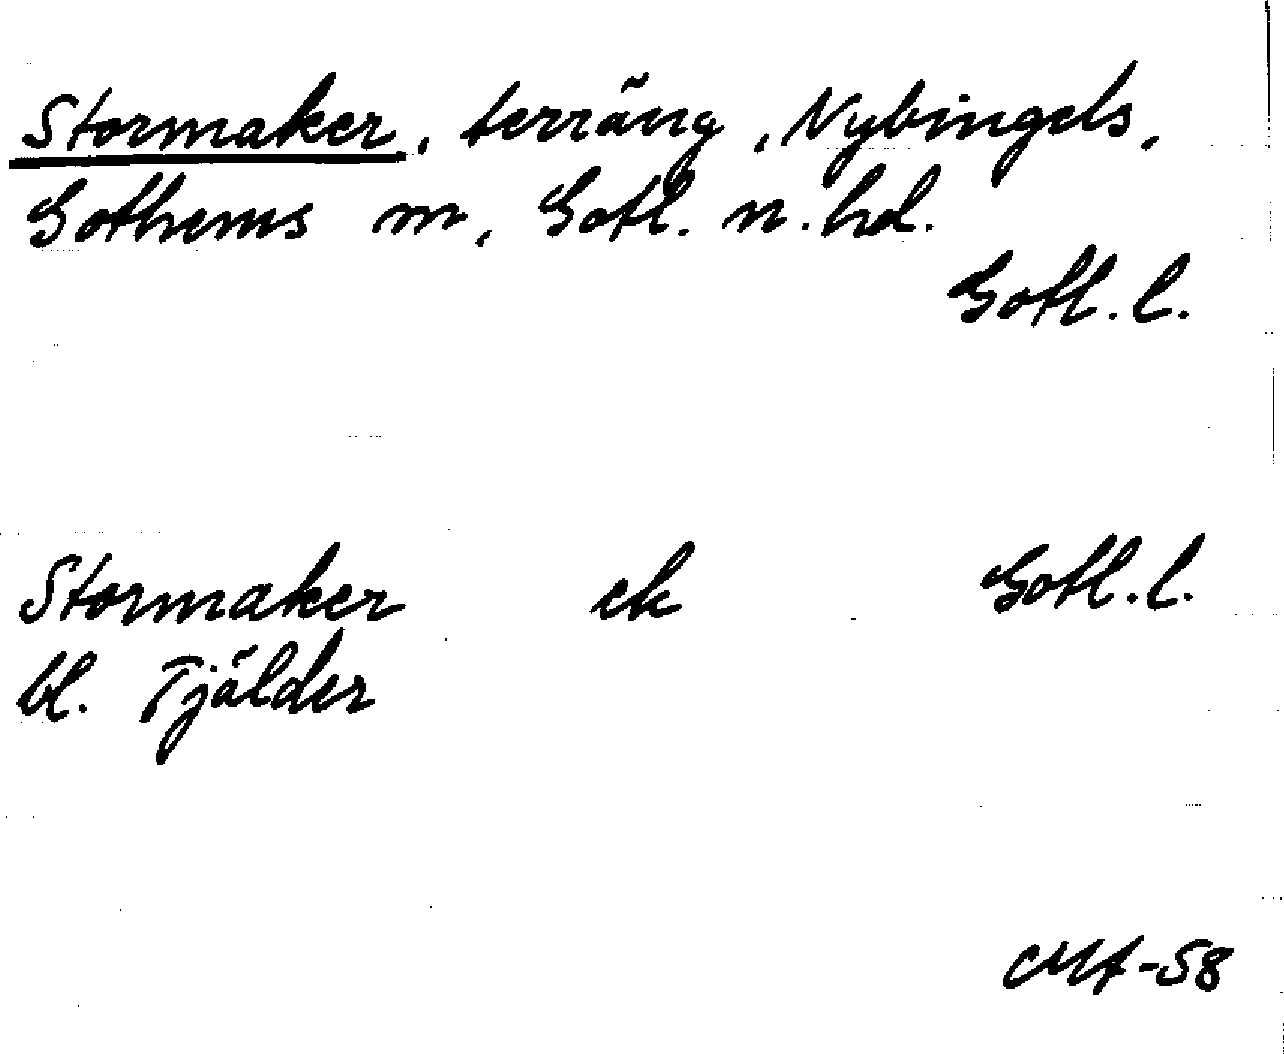 Stormaker, terräng, Nybingels,
Gothems m, Gotl. n. hd.
Gotl. l.
Stormaker ek Gotl. l.
bl. Tjälder